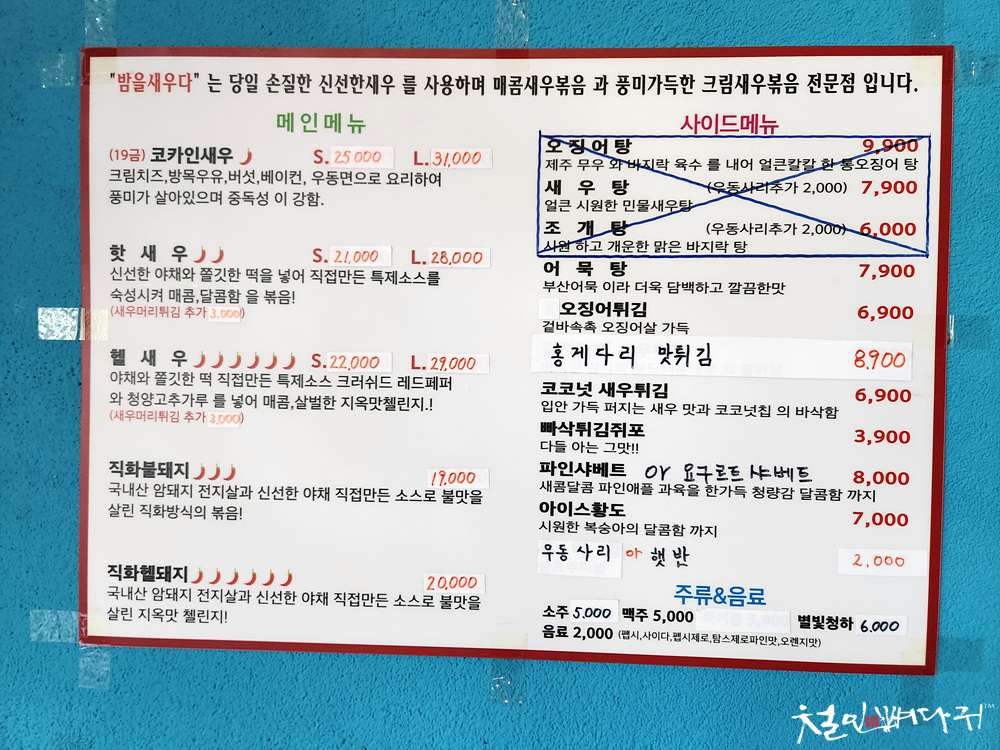 "밤을새우다" 는 당일 손질한 신선한새우 를 사용하며 매콤새우볶음 과 풍미가득한 크림새우볶음 전문점 입니다.
메인메뉴
(19금) 코카인새우 S. 25000 L. 31,000
크림치즈,방목우유,버섯,베이컨, 우동면으로 요리하여
풍미가 살아있으며 중독성 이 강함.
핫 새 우 S. 21,000 L. 28,000
신선한 야채와 쫄깃한 떡을 넣어 직접만든 특제소스를
숙성시켜 매콤,달콤함 을 볶음!
(새우머리튀김 추가 3,000)
헬 새 우 S. 22,000 L. 29,000
야채와 쫄깃한 떡 직접만든 특제소스 크러쉬드 레드페퍼
와 청양고추가루 를 넣어 매콤,살벌한 지옥맛첼린지.!
(새우머리튀김 추가 3,000)
직화불돼지 19,000
국내산 암돼지 전지살과 신선한 야채 직접만든 소스로 불맛을
살린 직화방식의 볶음!
직화헬돼지 20,000
국내산 암돼지 전지살과 신선한 야채 직접만든 소스로 불맛을
살린 지옥맛 첼린지!
사이드메뉴
오징어탕 9,900
제주 무우 와 바지락 육수 를 내어 얼큰칼칼 한 통오징어 탕
새 우 탕 (우동사리추가 2,000) 7,900
얼큰 시원한 민물새우탕
조 개 탕 (우동사리추가 2,000) 6,000
시원 하고 개운한 맑은 바지락 탕
어 묵 탕 7,900
부산어묵 이라 더욱 담백하고 깔끔한맛
오징어튀김 6,900
겉바속촉 오징어살 가득
홍게다리 맛튀김 8.900
코코넛 새우튀김 6,900
입안 가득 퍼지는 새우 맛과 코코넛칩 의 바삭함
빠삭튀김쥐포 3,900
다들 아는 그맛!!
파인샤베트 or 요구르트 샤베트 8,000
새콤달콤 파인애플 과육을 한가득 청량감 달콤함 까지
아이스황도 7,000
시원한 복숭아의 달콤함 까지
우동사리 or 햇반 2,000
주류&음료
소주 5.000 맥주 5,000 별빛청하 6.000
음료 2,000 (펩시,사이다,펩시제로,탐스제로파인맛,오렌지맛)
철민뼈다귀™